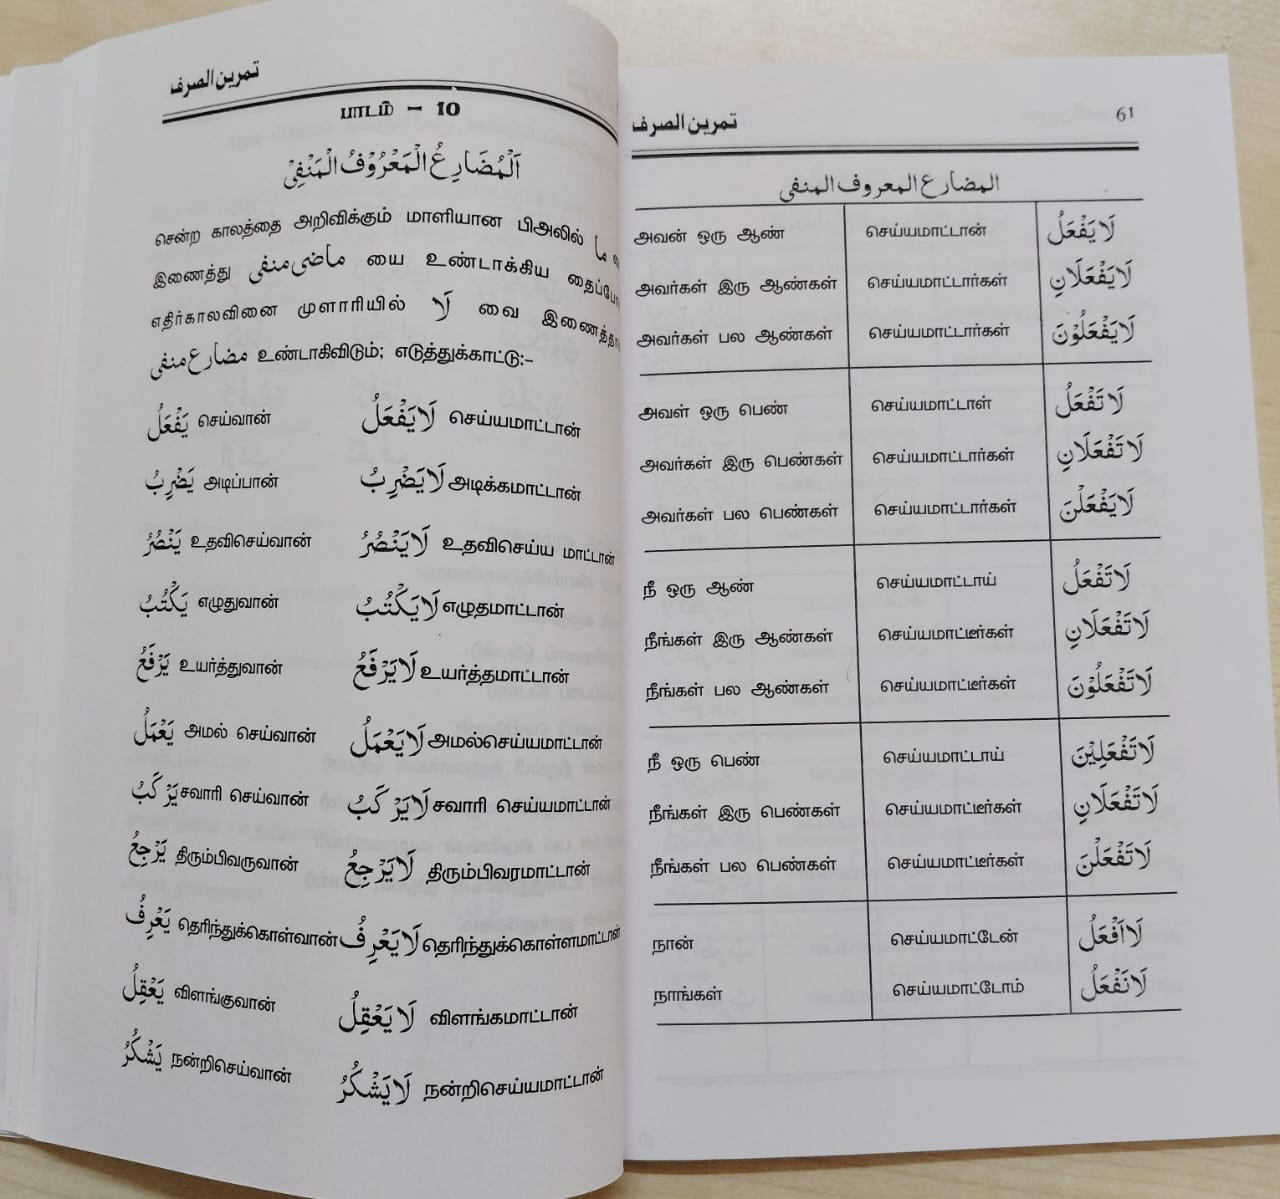 تمرين الصرف
பாடம் - 10
اَلْمُضَارِعُ الْمَعْرُوْفُ الْمَنْفِيْ
சென்ற காலத்தை அறிவிக்கும் மாளியான பிஅலில் ما
இணைத்து ماضی منفی யை உண்டாக்கிய தைப்போ
எதிர்காலவினை முளாரியில் لَا வை இணைத்தா
مضارع منفی உண்டாகிவிடும்; எடுத்துக்காட்டு:-
يَفْعَلُ செய்வான் لَا يَفْعَلُ செய்யமாட்டான்
يَضْرِبُ அடிப்பான் لَا يَضْرِبُ அடிக்கமாட்டான்
يَنْصُرُ உதவிசெய்வான் لَا يَنْصُرُ உதவிசெய்ய மாட்டான்
يَكْتُبُ எழுதுவான் لَا يَكْتُبُ எழுதமாட்டான்
يَرْفَعُ உயர்த்துவான் لَا يَرْفَعُ உயர்த்தமாட்டான்
يَعْمَلُ அமல் செய்வான் لَا يَعْمَلُ அமல்செய்யமாட்டான்
يَرْكَبُ சவாரி செய்வான் لَا يَرْكَبُ சவாரி செய்யமாட்டான்
يَرْجِعُ திரும்பிவருவான் لَا يَرْجِعُ திரும்பிவரமாட்டான்
يَعْرِفُ தெரிந்துக்கொள்வான் لَا يَعْرِفُ தெரிந்துக்கொள்ளமாட்டான்
يَعْقِلُ விளங்குவான் لَا يَعْقِلُ விளங்கமாட்டான்
يَشْكُرُ நன்றிசெய்வான் لَا يَشْكُرُ நன்றிசெய்யமாட்டான்
تمرين الصرف 61
المضارع المعروف المنفى
அவன் ஒரு ஆண் செய்யமாட்டான் لَا يَفْعَلُ
அவர்கள் இரு ஆண்கள் செய்யமாட்டார்கள் لَا يَفْعَلَانِ
அவர்கள் பல ஆண்கள் செய்யமாட்டார்கள் لَا يَفْعَلُوْنَ
அவள் ஒரு பெண் செய்யமாட்டாள் لَا تَفْعَلُ
அவர்கள் இரு பெண்கள் செய்யமாட்டார்கள் لَا تَفْعَلَانِ
அவர்கள் பல பெண்கள் செய்யமாட்டார்கள் لَا يَفْعَلْنَ
நீ ஒரு ஆண் செய்யமாட்டாய் لَا تَفْعَلُ
நீங்கள் இரு ஆண்கள் செய்யமாட்டீர்கள் لَا تَفْعَلَانِ
நீங்கள் பல ஆண்கள் செய்யமாட்டீர்கள் لَا تَفْعَلُوْنَ
நீ ஒரு பெண் செய்யமாட்டாய் لَا تَفْعَلِيْنَ
நீங்கள் இரு பெண்கள் செய்யமாட்டீர்கள் لَا تَفْعَلَانِ
நீங்கள் பல பெண்கள் செய்யமாட்டீர்கள் لَا تَفْعَلْنَ
நான் செய்யமாட்டேன் لَا اَفْعَلُ
நாங்கள் செய்யமாட்டோம் لَا نَفْعَلُ